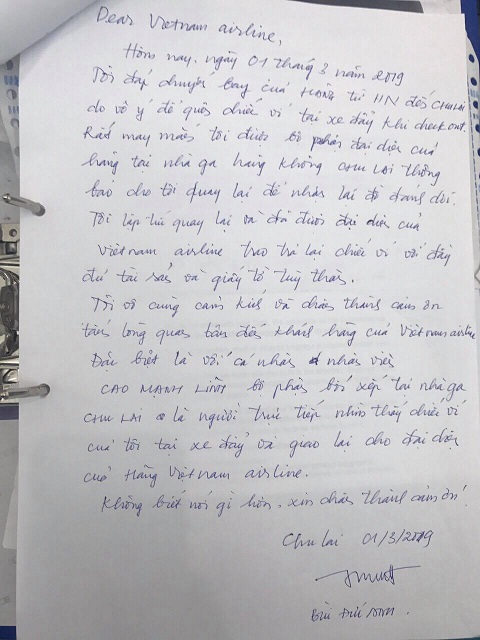 Dear Vietnam airline,
Hôm nay, ngày 01 tháng 3 năm 2019
Tôi đáp chuyến bay của Hãng từ HN đến CHU LAI
do vô ý để quên chiếc ví tại xe đẩy khi check out.
Rất may mắn tôi được bộ phận đại diện của
hãng tại nhà ga hàng không CHU LAI thông
báo cho tôi quay lại để nhận lại đồ đánh rơi.
Tôi lập tức quay lại và đã được đại diện của
Vietnam airline trao trả lại chiếc ví với đầy
đủ tài sản và giấy tờ tùy thân.
Tôi vô cùng cảm kích và chân thành cảm ơn
tấm lòng quan tâm đến khách hàng của Vietnam airline
Đặc biệt là với cá nhân nhân viên
CAO MANH LINH bộ phận bốc xếp tại nhà ga
CHU LAI là người trực tiếp nhìn thấy chiếc ví
của tôi tại xe đẩy và giao lại cho đại diện
của Hãng Vietnam airline.
Không biết nói gì hơn. xin chân thành cảm ơn!
Chu lai 01/3/2019
Bùi Đức